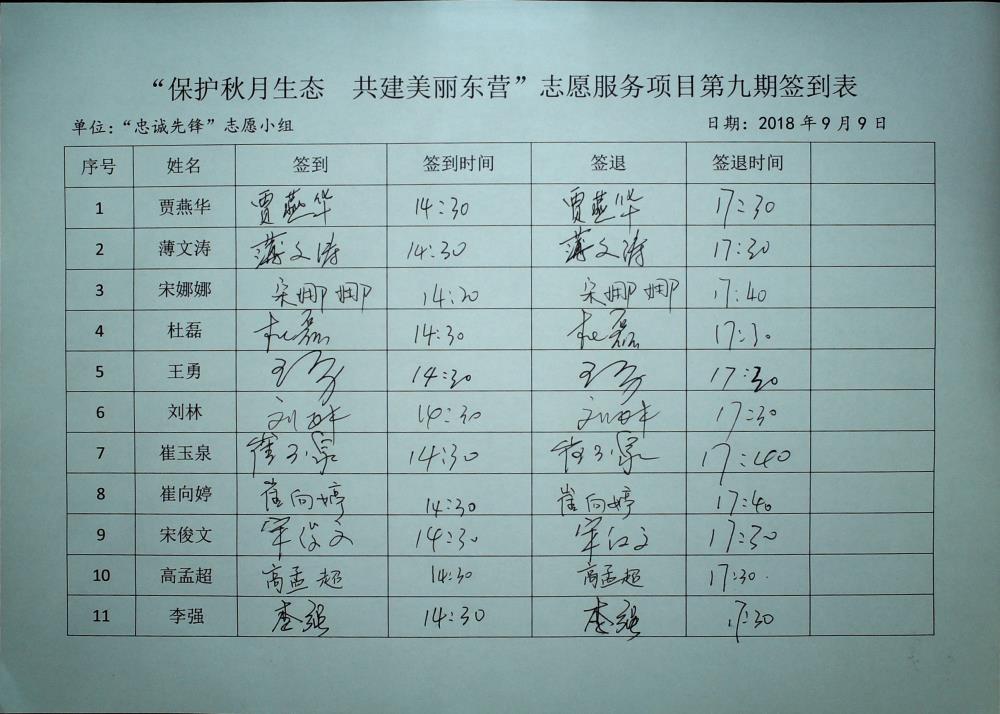 “保护秋月生态 共建美丽东营”志愿服务项目第九期签到表
单位：“忠诚先锋”志愿小组 日期：2018 年 9 月 9 日
序号 姓名 签到 签到时间 签退 签退时间
1 贾燕华 贾燕华 14:30 贾燕华 17:30
2 薄文涛 薄文涛 14:30 薄文涛 17:30
3 宋娜娜 宋娜娜 14:20 宋娜娜 17:40
4 杜磊 杜磊 14:30 杜磊 17:30
5 王勇 王勇 14:30 王勇 17:30
6 刘林 刘林 14:30 刘林 17:30
7 崔玉泉 崔玉泉 14:30 崔玉泉 17:40
8 崔向婷 崔向婷 14:30 崔向婷 17:40
9 宋俊文 宋俊文 14:30 宋俊文 17:30
10 高孟超 高孟超 14:30 高孟超 17:30
11 李强 李强 14:30 李强 17:30